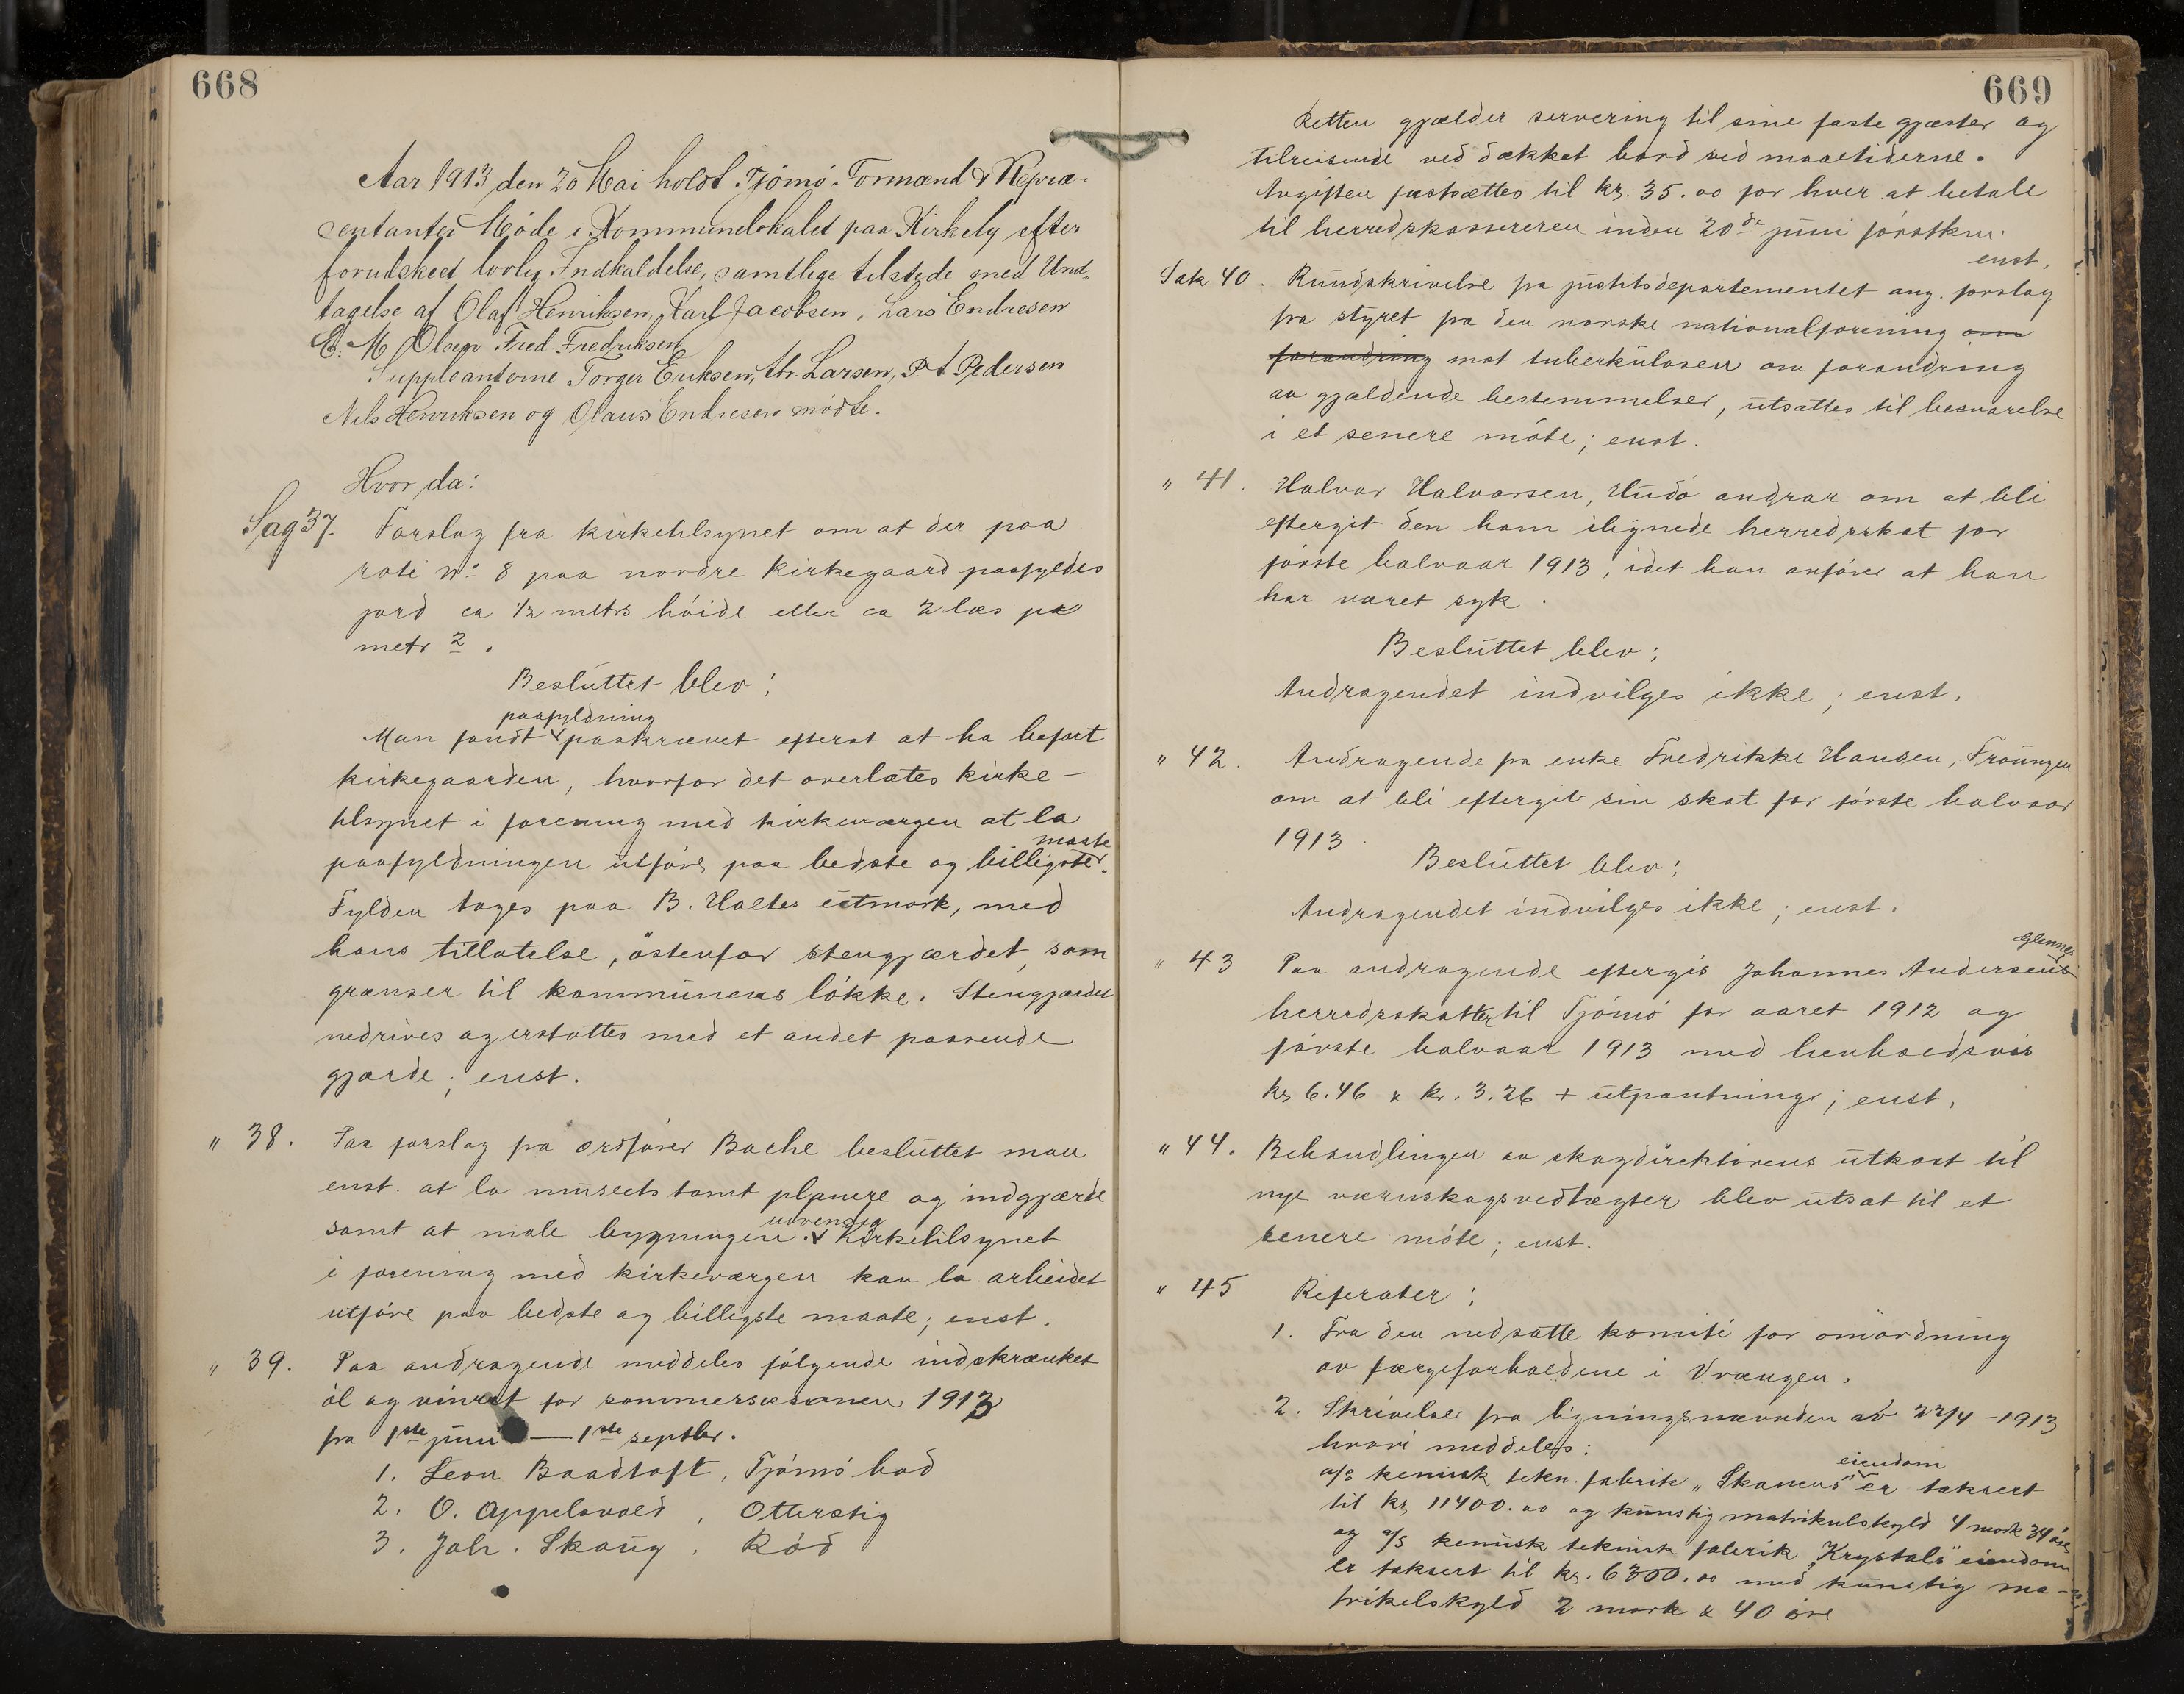 668
Aar 1913 den 20 Mai holdt Tjømø Formænd & Repræ-
sentanter Møde i Kommunelokalet paa Kirkely efter
forudskeet lovlig Indkaldelse, samtlige tilstede med Und-
tagelse af Olaf Henriksen, Karl Jacobsen, Lars Endresen
E. M. Olsen Fred. Fredriksen
Suppleanterne Torger Eriksen, Chr. Larsen, P. A. Pedersen
Nils Henriksen og Olaus Endresen mødte.
Hvor da:
Sag 37. Forslag fra kirketilsynet om at der paa
rote No 8 paa nordre kirkegaard paafyldes
jord ca 1/2 metrs høide eller ca 2 læs pr
metr 2.
Besluttet blev:
paafyldning
Man fandt paakrævet efterat at ha befart
kirkegaarden, hvorfor det overlates kirke-
tilsynet i forening med kirkeværgen at la
maate
paafyldningen utføre paa bedste og billigste.
Fylden tages paa B. Holtes utmark, med
hans tillatelse, østenfor stengjærdet, som
grænser til kommunens løkke. Stengjærdet
nedrives og erstattes med et andet passende
gjærde; enst.
" 38. Paa forslag fra ordfører Bache besluttet man
enst. at la museets tomt planere og indgjærde
utvendig
samt at male bygningen. Kirketilsynet
i forening med kirkeværgen kan la arbeidet
utføre paa bedste og billigste maate; enst.
" 39. Paa andragende meddeles følgende indskrænket
øl og vinret for sommersæsonen 1913
fra 1ste juni — 1ste septbr.
1. Leon Baadtoft, Tjømø bad
2. O. Appelsvold, Otterstig
3. Joh. Skaug, Rød
669
Retten gjælder servering til sine faste gjæster og
tilreisende ved dækket bord ved maaltiderne.
Avgiften fastsættes til kr. 35.00 for hver at betale
til herredskassereren inden 20de juni førstkm.
enst.
Sak 40. Rundskrivelse fra justitsdepartementet ang. forslag
fra styret fra den norske nationalforening om
forandring mot tuberkulosen om forandring
av gjældende bestemmelser, utsættes til besvarelse
i et senere møte; enst.
" 41. Halvor Halvorsen, Hudø andrar om at bli
eftergit den ham ilignede herredsskat for
første halvaar 1913, idet han anfører at han
har været syk.
Besluttet blev:
Andragendet indvilges ikke; enst.
" 42. Andragende fra enke Fredrikke Hansen,
om at bli eftergit sin skat for første halvaar
1913.
Besluttet blev:
Andragendet indvilges ikke; enst.
Glennes
" 43 Paa andragende eftergis Johannes Andersens
herredsskatter til Tjømø for aaret 1912 og
første halvaar 1913 med henholdsvis
kr 6.46 & kr. 3.26 + utpantning; enst.
" 44. Behandlingen av skogdirektørens utkast til
nye værnskogsvedtægter blev utsat til et
senere møte; enst.
" 45 Referater:
1. Fra den nedsatte komité for omordning
av færgeforholdene i Vrængen.
2. Skrivelse fra ligningsnævnden av 22/4 - 1913
hvori meddeles:
eiendom
a/s kemisk tekn. fabrik "Skanens" er taksert
til kr. 11400.00 og kunstig matrikulskyld 4 mark 34 øre
og a/s kemisk teknisk fabrik "Krystals" eiendom
er taksert til kr. 6300.00 med kunstig ma-
trikelskyld 2 mark & 40 øre